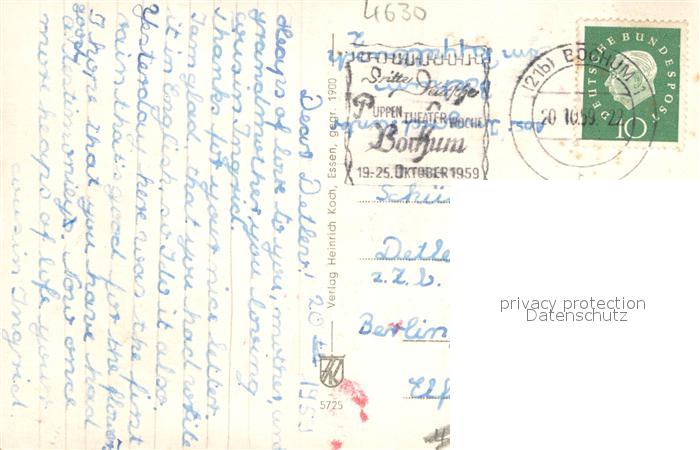 4630
Dritte Deutsche
PUPPEN THEATER WOCHE
Bochum
19.-25. OKTOBER 1959
(21b) BOCHUM
20.10.59.-22
DEUTSCHE BUNDESPOST
10
Dear Detlev! 20 1959
Heaps of love to you, mother, and
grandmother you loving
cousin Ingrid.
Thanks for your nice letter
I am glad that you had write
it in English, so I do it also.
Yesterday here was the first
rain that is good for the flower
I hope that you have had
good
more heaps of life your
cousin Ingrid
Verlag Heinrich Koch, Essen, gegr. 1900
5725
Schü
Detle
z.Z.b.
Berlin
privacy protection
Datenschutz